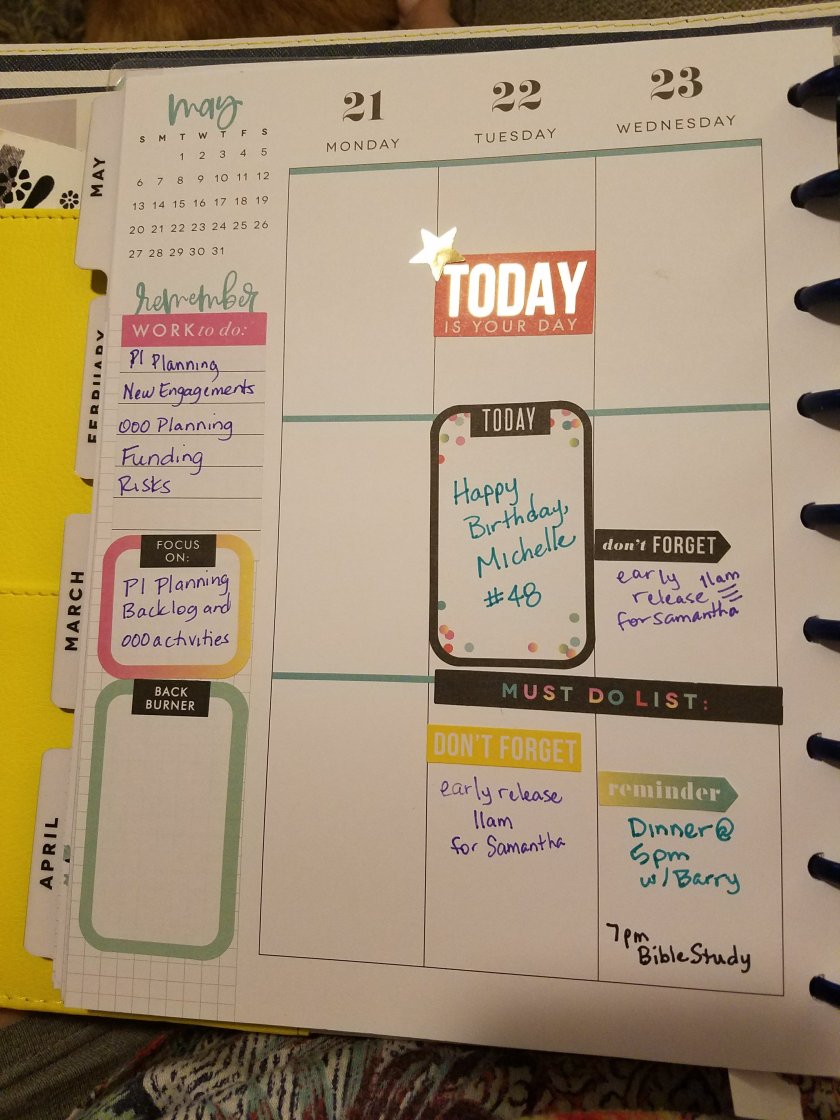 may
S M T W T F S
1 2 3 4 5
6 7 8 9 10 11 12
13 14 15 16 17 18 19
20 21 22 23 24 25 26
27 28 29 30 31
remember
WORK to do:
PI Planning
New Engagements
OOO Planning
Funding
Risks
FOCUS
ON:
PI Planning
Backlog and
OOO activities
BACK
BURNER
MAY
FEBRUARY
MARCH
APRIL
21
MONDAY
22
TUESDAY
TODAY
IS YOUR DAY
TODAY
Happy
Birthday,
Michelle
#48
MUST DO LIST:
DON'T FORGET
early release
11am
for Samantha
23
WEDNESDAY
don't FORGET
early 11am
release
for Samantha
reminder
Dinner @
5pm
w/ Barry
7pm
Bible Study